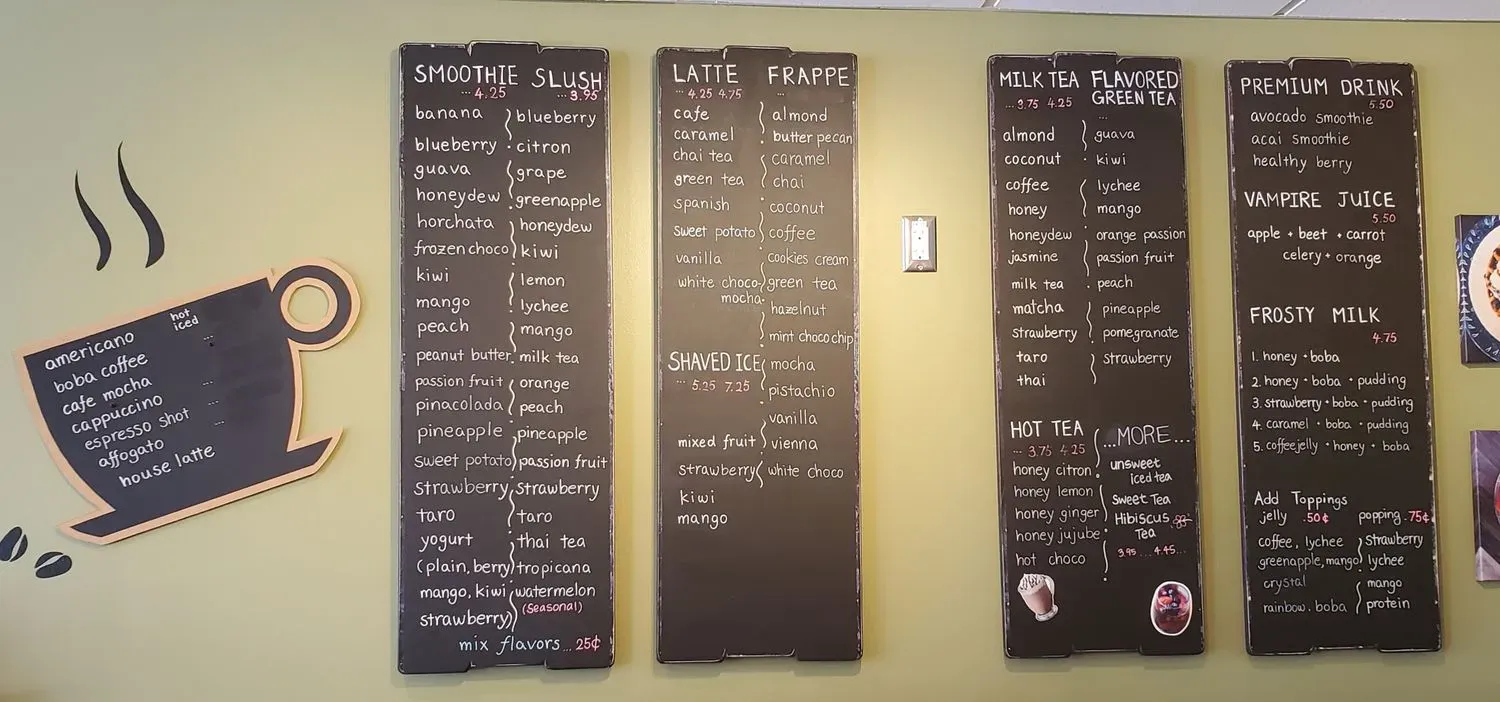 americano
boba coffee
cafe mocha
cappuccino
espresso shot
affogato
house latte
hot
iced
...
...
...
SMOOTHIE
... 4.25
banana
blueberry
guava
honeydew
horchata
frozen choco
kiwi
mango
peach
peanut butter
passion fruit
pinacolada
pineapple
sweet potato
Strawberry
taro
yogurt
(plain, berry)
mango, kiwi
strawberry)
SLUSH
... 3.95
blueberry
citron
grape
greenapple
honeydew
kiwi
lemon
lychee
mango
milk tea
orange
peach
pineapple
passion fruit
Strawberry
taro
thai tea
tropicana
watermelon
(Seasonal)
mix flavors ... 25¢
LATTE
... 4.25 4.75
cafe
caramel
chai tea
green tea
spanish
sweet potato
vanilla
white choco
mocha
SHAVED ICE
... 5.25 7.25
mixed fruit
strawberry
kiwi
mango
FRAPPE
...
almond
butter pecan
caramel
chai
coconut
coffee
cookies cream
green tea
hazelnut
mint choco chip
mocha
pistachio
vanilla
vienna
white choco
MILK TEA
... 3.75 4.25
almond
coconut
coffee
honey
honeydew
jasmine
milk tea
matcha
strawberry
taro
thai
FLAVORED
GREEN TEA
...
guava
kiwi
lychee
mango
orange passion
passion fruit
peach
pineapple
pomegranate
strawberry
HOT TEA
... 3.75 4.25
honey citron
honey lemon
honey ginger
honey jujube
hot choco
...MORE...
unsweet
iced tea
Sweet Tea
Hibiscus
Tea
3.95 ... 4.45...
PREMIUM DRINK
5.50
avocado smoothie
acai smoothie
healthy berry
VAMPIRE JUICE
5.50
apple + beet + carrot
celery + orange
FROSTY MILK
4.75
1. honey • boba
2. honey • boba • pudding
3. strawberry • boba • pudding
4. caramel • boba • pudding
5. coffeejelly • honey • boba
Add Toppings
jelly .50¢
coffee, lychee
greenapple, mango
crystal
rainbow. boba
popping .75¢
strawberry
lychee
mango
protein